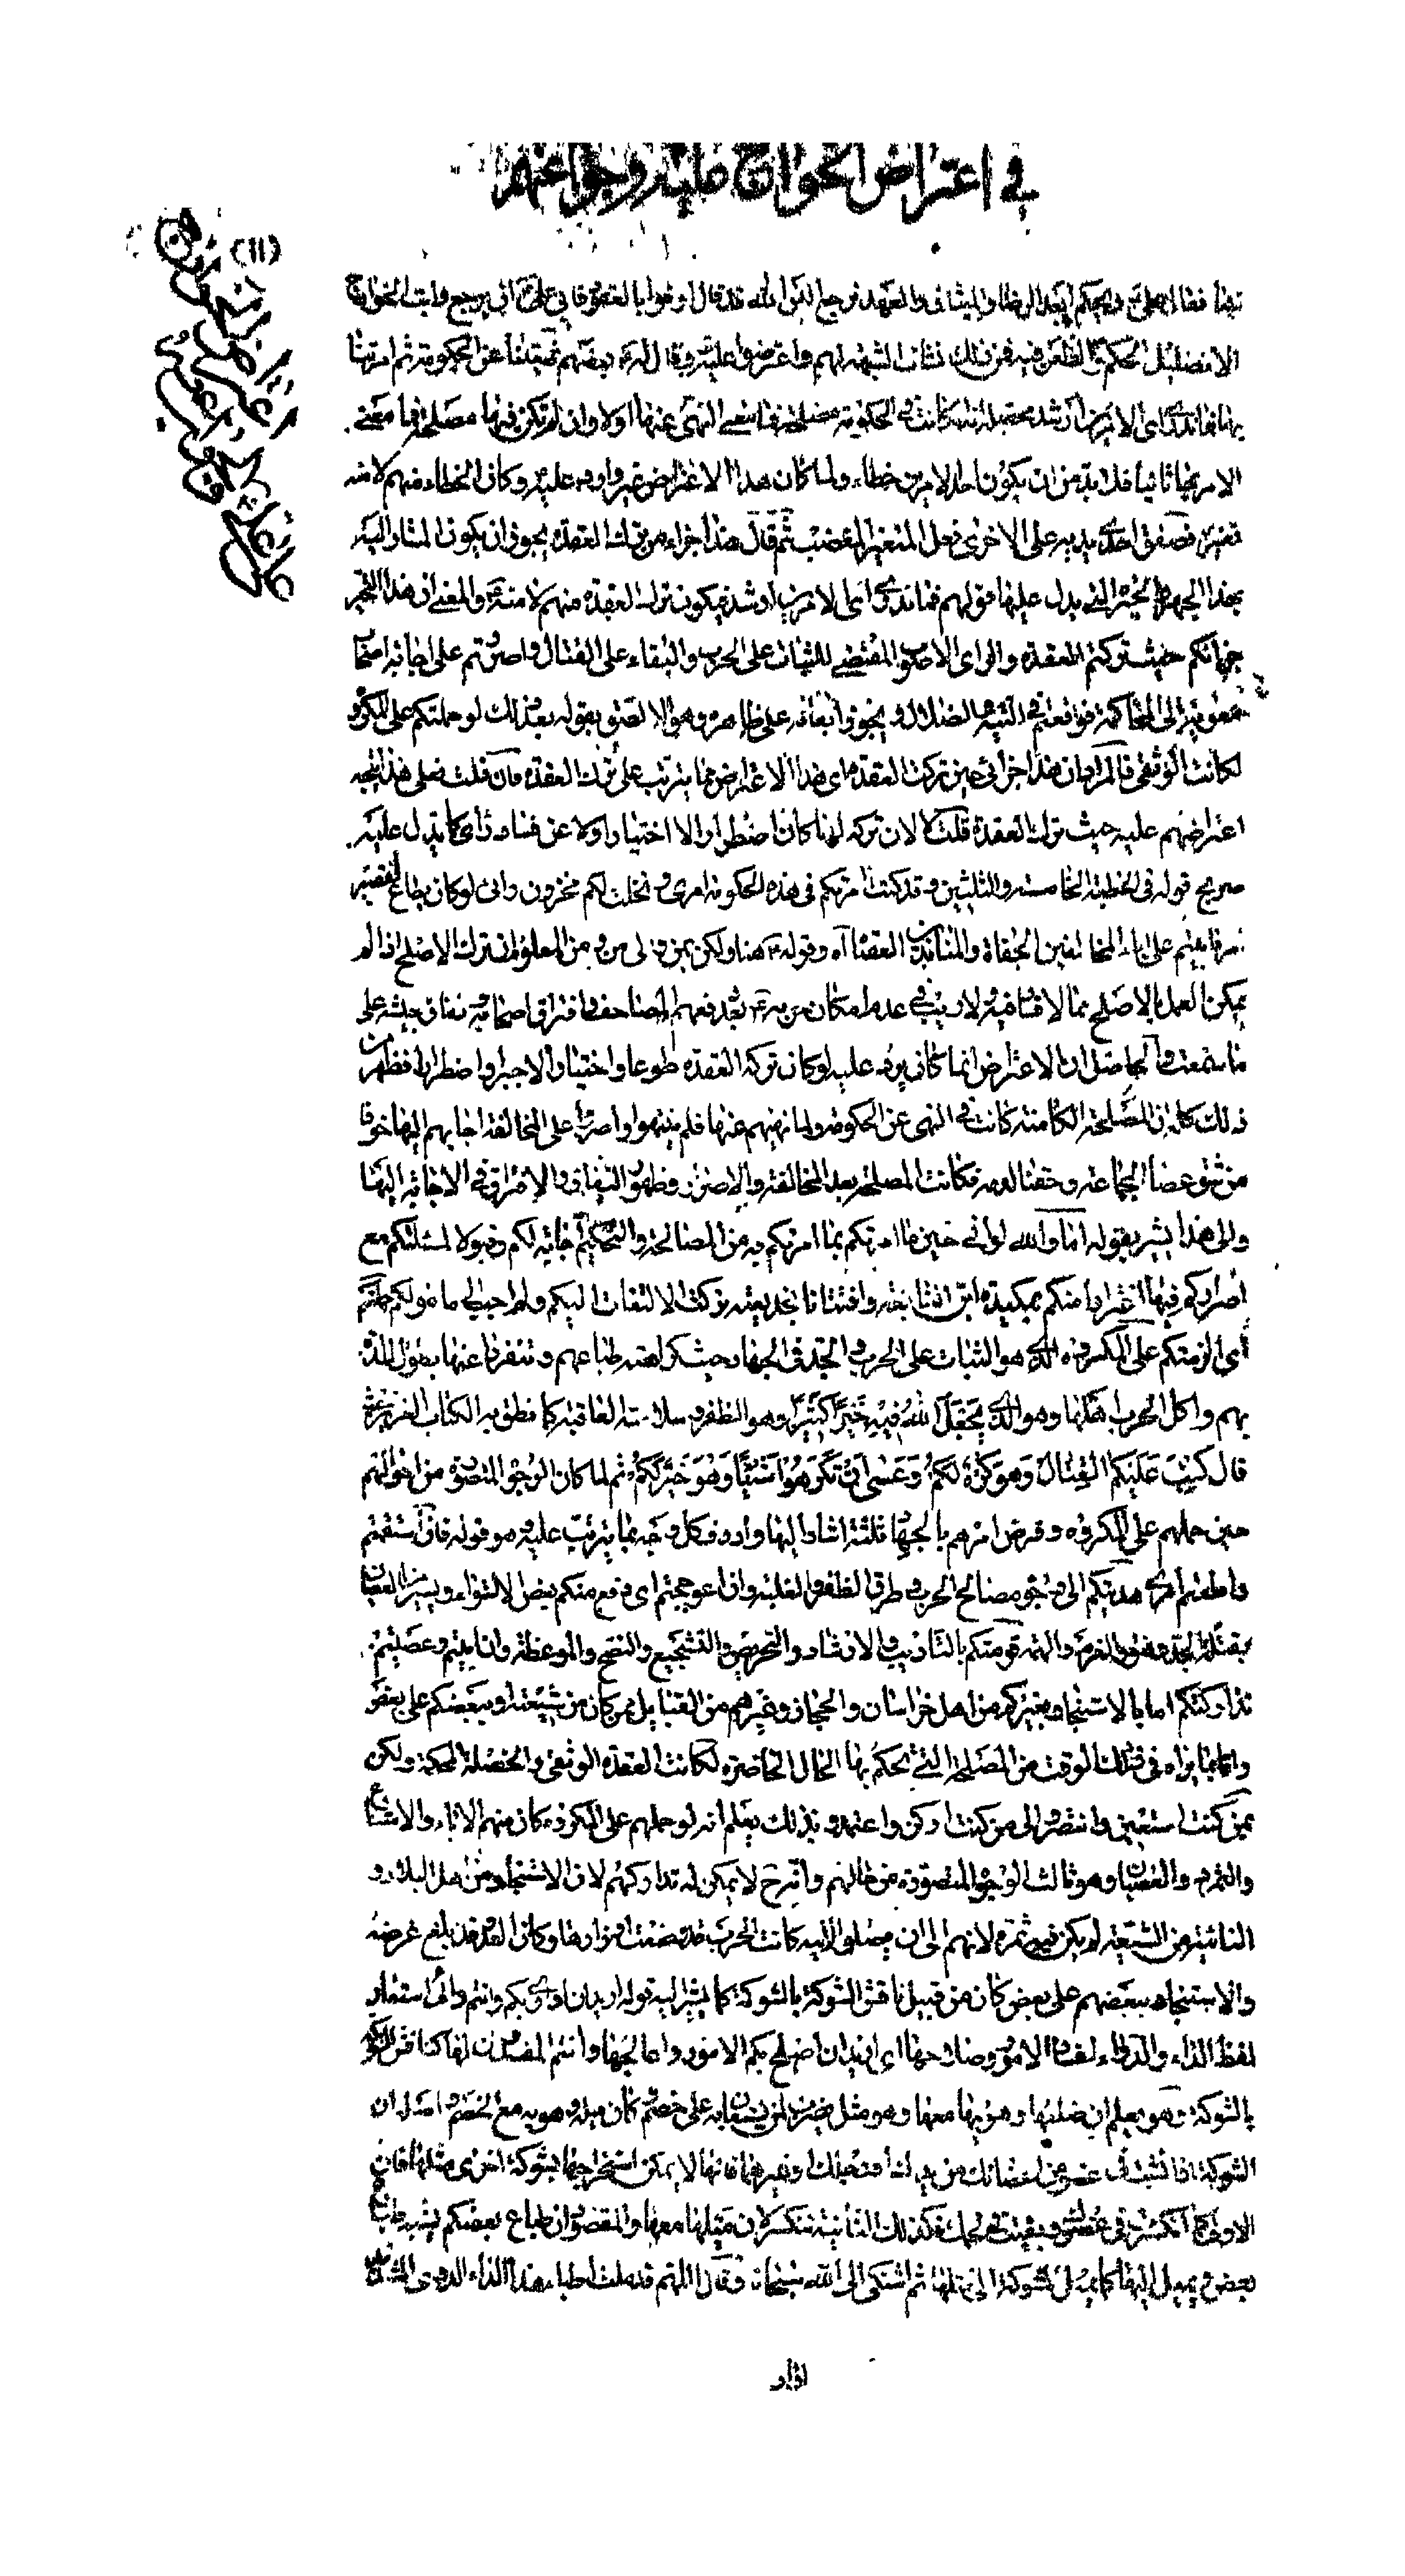 في اعتراض الخوارج عليه وجوابه عنهم
(١١)
تبنا فقال على ويحكم ابعد الرضا والميثاق والعهد نرجع اليس الله قد قال اوفوا بالعقود فابى على ان يرجع وابت الخوارج
الا تضليل الحكم والطعن فيه فمن ذلك نشأت الشبهة لهم واعترضوا عليه وقال له بعضهم نهيتنا عن الحكومة ثم امرتنا
بها فما ندرى اى الامرين ارشد كانت في الحكومة مصلحة فما معنى النهى عنها اولا وان لم تكن فيها مصلحة فما معنى
الامر بها ثانيا فلا بد من ان يكون احد الامرين خطاء ولما كان هذا الاعتراض غير وارد عليه وكان الخطاء منهم لا منه
تغير فصفق احدى يديه على الاخرى فعل المتغير المغضب ثم قال هذا جزاء من ترك العقدة يجوز ان يكون المشار اليه
بهذا الجهل والحيرة التى يدل عليها قولهم فما ندرى اى الامرين ارشد فيكون ترك العقدة منهم لا منه والمعنى ان هذا التحير
جزائكم حيث تركتم العقدة والراى الاصوب المقتضى للثبات على الحرب والبقاء على القتال واصررتم على اجابة اصحاب
معوية الى المحاكمة فوقعتم في التيه والضلال ويجوز ابقائه على ظاهره وهو الالصق بقوله بعد ذلك لو حملتكم على المكروه
لكانت الوثقى فالمراد ان هذا جزائى حين تركت العقدة اى هذا الاعتراض مما يترتب على ترك العقدة فان قلت فعلى هذا يتجه
اعتراضهم عليه حيث ترك العقدة قلت كلا لان تركه لها كان اضطرارا لا اختيارا ولا عن فساد رأى كما يدل عليه
صريح قوله في الخطبة الخامسة والثلثين وقد كنت امرتكم في هذه الحكومة امرى ونخلت لكم مخزون رائى لو كان يطاع لقصير
امر فابيتم على اباء المخالفين الجفاة والمنابذين العصاة آه وقوله هنا ولكن بمن والى من ومن المعلوم ان ترك الاصلح اذا لم
يمكن العمل بالاصلح مما لا فساد فيه ولا ريب في عدم امكان حربه بعد رفعهم المصاحف وافتراق اصحابه ونفاق جيشه على
ما سمعت والحاصل ان الاعتراض انما كان يرد عليه لو كان تركه العقدة طوعا واختيارا لا جبرا واضطرارا فظهر من
ذلك كله ان المصلحة الكامنة كانت في النهى عن الحكومة ولما نهيهم عنها فلم ينتهوا واصروا على المخالفة اجابهم اليها خوفا
من شق عصا الجماعة وحقنا لدمه فكانت المصلحة بعد المخالفة والاصرار وظهور النفاق والافتراق في الاجابة اليها
والى هذا يشير بقوله اما والله لو انى حين ما امرتكم بما امرتكم به من المصالحة والتحكيم اجابة لكم وقبولا لمسئلتكم مع
اصراركم فيها اغترارا منكم بمكيدة ابن النابغة وافتتانا بخديعته تركت الالتفات اليكم ولم اجبكم الى ما مولكم حملتكم
اى الزمتكم على المكروه الذى هو الثبات على الحرب والجد في الجهاد حيث كراهة طباعهم وتنفرها عنها بطول المدة
بهم واكل الحرب اهلها وهو الذى يجعل الله فيه خيرا كثيرا وهو الظفر وسلامة العاقبة كما نطق به الكتاب العزيز حيث
قال كتب عليكم القتال وهو كره لكم وعسى ان تكرهوا شيئا وهو خير لكم ثم لما كان الوجوه المتصورة من احوالهم
حين حملهم على المكروه وفرض امرهم بالجهاد ثلثة اشار اليها واردف كل وجه بما يترتب عليه وهو قوله فان استقمتم
واطعتم امرى هديتكم الى وجوه مصالح الحرب وطرق الظفر والغلبة وان اعوججتم اى وقع منكم بعض الالتواء ويسير من العصيان
بقلة الجد وفتور العزم والهمة قومتكم بالتاديب والارشاد والتحريص والتشجيع والنصح والموعظة وان ابيتم وعصيتم
تداركتكم اما بالاستنجاد بغيركم من اهل خراسان والحجاز وغيرهم من القبايل ممن كان من شيعته او ببعضكم على بعض
واما بما يراه في ذلك الوقت من المصلحة التى تحكم بها الحال الحاضرة لكانت العقدة الوثقى والخصلة المحكمة ولكن
بمن كنت استعين وانتصر والى من كنت اركن واعتمد وبذلك يعلم انه لو حملهم على المكروه كان منهم الاباء والامتناع
والتمرد والعصيان وهو ثالث الوجوه المتصورة من حالهم وانه ح لا يمكن له تداركهم لان الاستنجاد من اهل البلاد
النائية من الشيعة لم يكن فيه ثمرة لانهم الى ان يصلوا اليه كانت الحرب قد وضعت اوزارها وكان العدو قد بلغ غرضه
والاستنجاد ببعضهم على بعض كان من قبيل ناقش الشوكة بالشوكة كما يشير اليه قوله اريد ان اداوى بكم وانتم دائى استعار
لفظ الداء والدواء لفساد الامور وصلاحها اى اريد ان اصلح بكم الامور واعالجها وانتم المفسدون لها كناقش الشوكة
بالشوكة وهو يعلم ان ضلعها وهو يلها معها وهو مثل يضرب لمن يستعان به على خصم كان ميله وهويه مع الخصم واصله ان
الشوكة اذا نشبت في عضو من اعضائك من يدك او رجلك او غيرهما فانها لا يمكن استخراجها بشوكة اخرى مثلها فان
الاولى كما انكسرت في عضوك وبقيت في لحمك فكذلك الثانية تنكسر لان ميلها معها والمقصود ان طباع بعضكم يشبه طباع
بعض ويميل اليها كما يميل الشوكة الى مثلها ثم اشتكى الى الله سبحانه وقال اللهم قد ملت اطباء هذا الداء الدوى